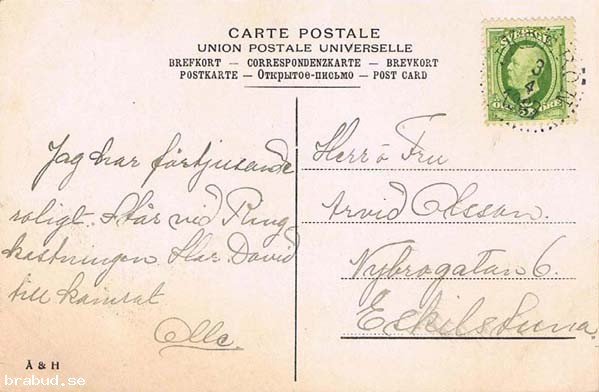 CARTE POSTALE
UNION POSTALE UNIVERSELLE
BREFKORT — CORRESPONDENZKARTE — BREVKORT
POSTKARTE — Открытое-письмо — POST CARD
SVERIGE
Jag har förtjusande
roligt. Står vid Ring
kastningen. Har David
till kamrat
Olle
Herr o Fru
Arvid Olsson.
Nybrogatan 6.
Eskilstuna.
Å & H
brabud.se